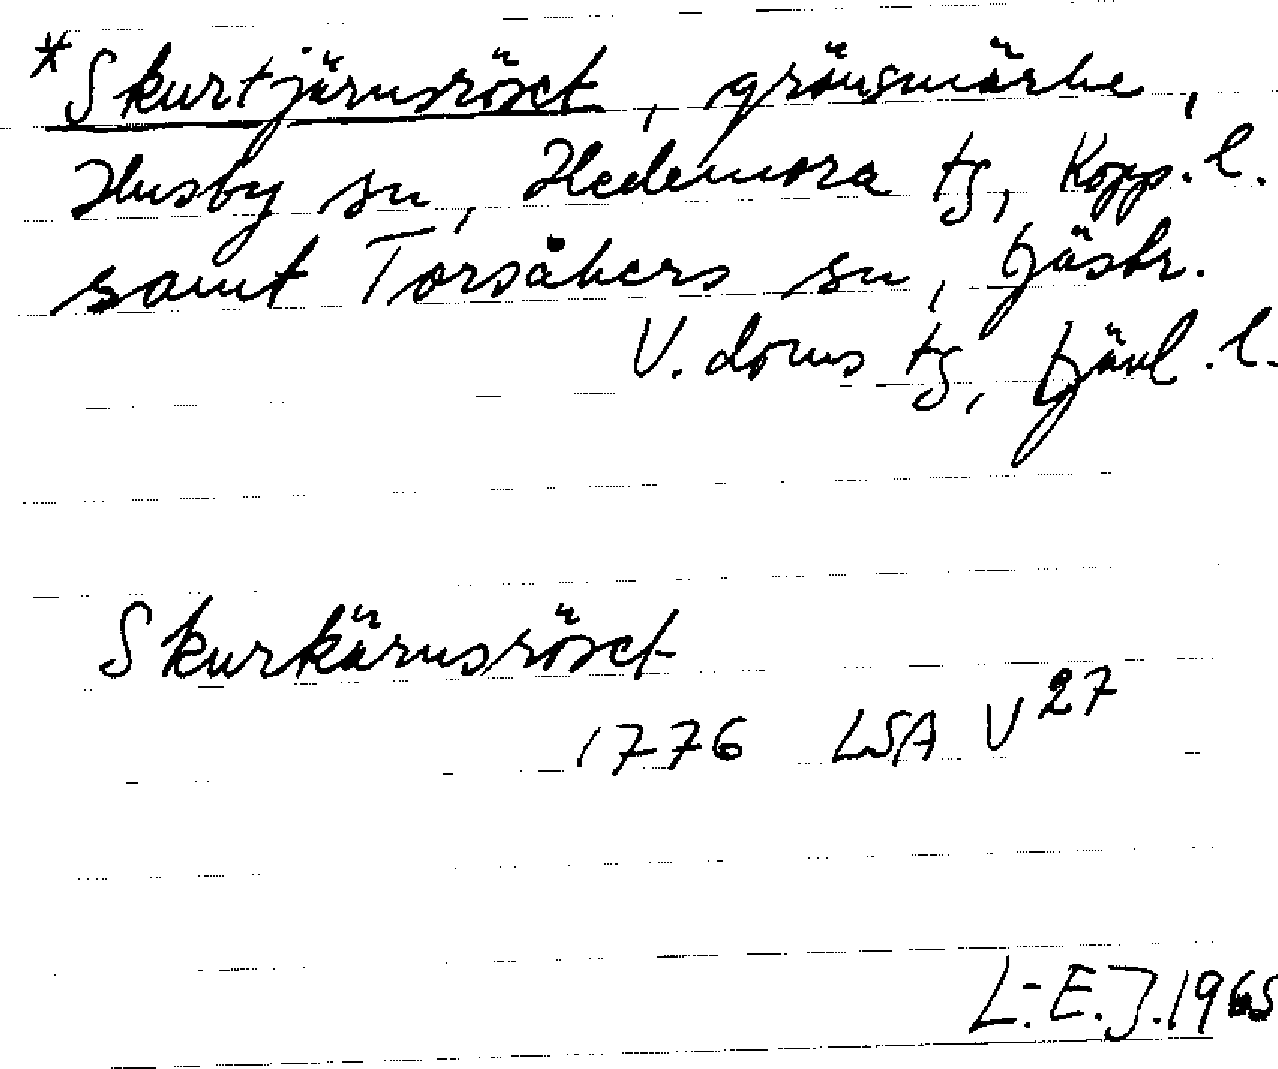 *Skurtjärnsröset, gränsmärke,
Husby sn, Hedemora tg, Kopp. l.
samt Torsåkers sn, Gästr.
V. doms tg, Gävl. l.
Skurkärnsröset
1776 LSA V27
L-E.J. 1965